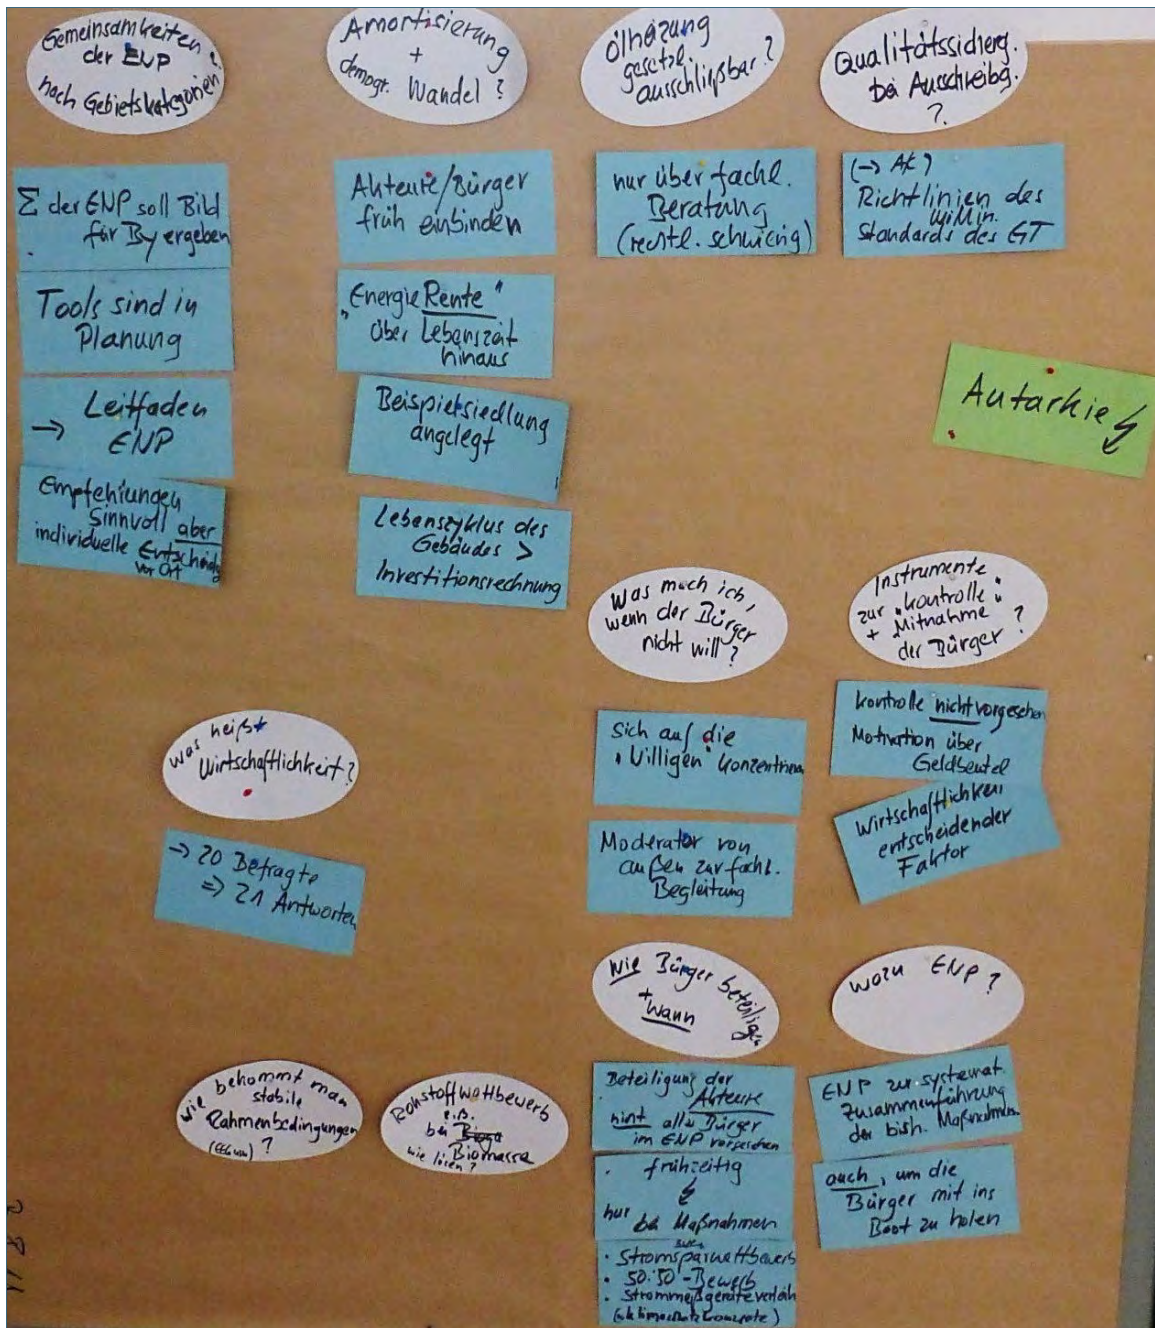 Gemeinsamkeiten
der ENP
nach Gebietskategorien?
Σ der ENP soll Bild
für By ergeben
Tools sind in
Planung
→ Leitfaden
ENP
Empfehlungen
sinnvoll aber
individuelle Entscheidg
vor Ort
Amortisierung
+
demogr. Wandel?
Akteure/Bürger
früh einbinden
„Energie Rente"
über Lebenszeit
hinaus
Beispielsiedlung
angelegt
Lebenszyklus des
Gebäudes >
Investitionsrechnung
Ölheizung
gesetzl.
ausschließbar?
nur über fachl.
Beratung
(rechtl. schwierig)
Qualitätssicherg.
bei Ausschreibg.
?
(→ AK?)
Richtlinien des
WiMin.
Standards des GT
Autarkie
Was mach ich,
wenn der Bürger
nicht will?
Sich auf die
„Willigen" konzentrieren
Moderator von
außen zur fachl.
Begleitung
Instrumente
zur „Kontrolle"
+ Mitnahme
der Bürger?
Kontrolle nicht vorgesehen
Motivation über
Geldbeutel
Wirtschaftlichkeit
entscheidender
Faktor
Was heißt
Wirtschaftlichkeit?
→ 20 Befragte
⇒ 21 Antworten
Wie Bürger beteiligen
+ wann
Beteiligung der
Akteure
nicht aller Bürger
im ENP vorgesehen
frühzeitig
nur bei Maßnahmen
• Stromsparwettbewerb
• 50:50-Bewerb
• Strommeßgeräteverleih
wozu ENP?
ENP zur systemat.
Zusammenführung
der bish. Maßnahmen
auch, um die
Bürger mit ins
Boot zu holen
wie bekommt man
stabile
Rahmenbedingungen
?
Rohstoffwettbewerb
z.B.
bei
Biomasse
wie lösen?